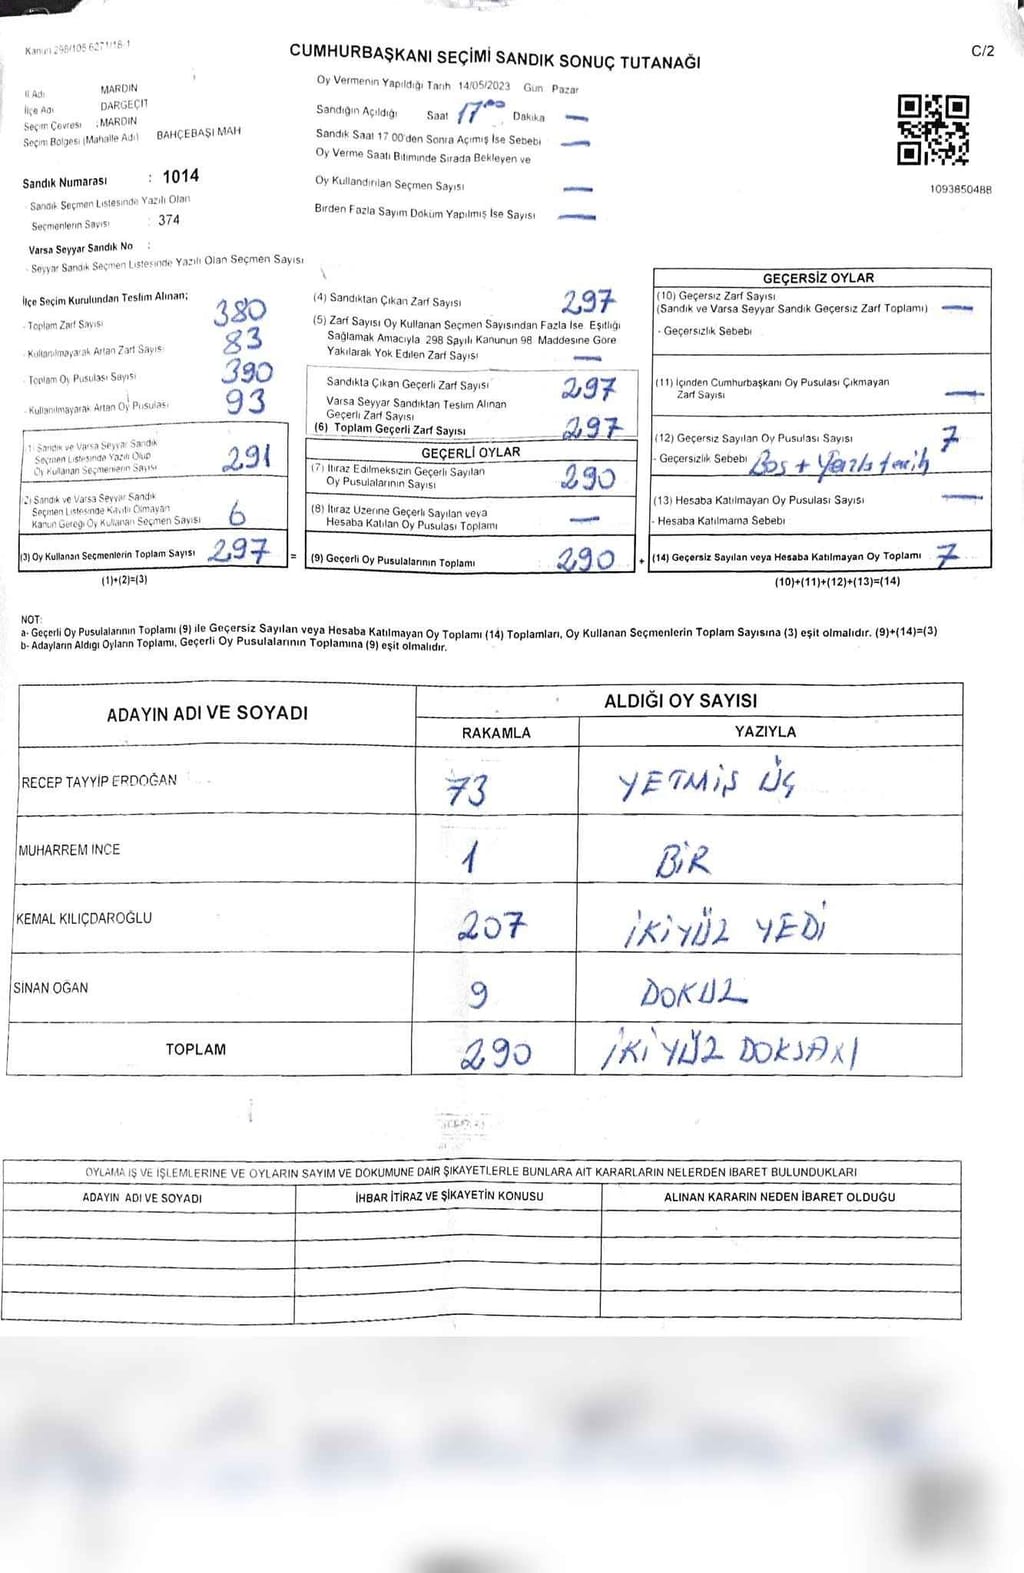 Kanun 298/105 6271/18-1
CUMHURBAŞKANI SEÇİMİ SANDIK SONUÇ TUTANAĞI
C/2
İl Adı MARDİN
İlçe Adı DARGEÇİT
Seçim Çevresi : MARDİN
Seçim Bölgesi (Mahalle Adı) BAHÇEBAŞI MAH
Sandık Numarası : 1014
- Sandık Seçmen Listesinde Yazılı Olan
Seçmenlerin Sayısı : 374
Varsa Seyyar Sandık No :
- Seyyar Sandık Seçmen Listesinde Yazılı Olan Seçmen Sayısı
Oy Vermenin Yapıldığı Tarih 14/05/2023 Gün Pazar
Sandığın Açıldığı Saat 17⁰⁰ Dakika —
Sandık Saat 17 00'den Sonra Açımış İse Sebebi —
Oy Verme Saati Bitiminde Sırada Bekleyen ve
Oy Kullandırılan Seçmen Sayısı —
Birden Fazla Sayım Döküm Yapılmış İse Sayısı —
1093850488
İlçe Seçim Kurulundan Teslim Alınan;
- Toplam Zarf Sayısı 380
- Kullanılmayarak Artan Zarf Sayısı 83
- Toplam Oy Pusulası Sayısı 390
- Kullanılmayarak Artan Oy Pusulası 93
(1) Sandık ve Varsa Seyyar Sandık
Seçmen Listesinde Yazılı Olup
Oy Kullanan Seçmenlerin Sayısı 291
(2) Sandık ve Varsa Seyyar Sandık
Seçmen Listesinde Kayıtlı Olmayan
Kanun Gereği Oy Kullanan Seçmen Sayısı 6
(3) Oy Kullanan Seçmenlerin Toplam Sayısı 297 =
(1)+(2)=(3)
(4) Sandıktan Çıkan Zarf Sayısı 297
(5) Zarf Sayısı Oy Kullanan Seçmen Sayısından Fazla İse Eşitliği
Sağlamak Amacıyla 298 Sayılı Kanunun 98 Maddesine Göre
Yakılarak Yok Edilen Zarf Sayısı —
Sandıkta Çıkan Geçerli Zarf Sayısı 297
Varsa Seyyar Sandıktan Teslim Alınan
Geçerli Zarf Sayısı
(6) Toplam Geçerli Zarf Sayısı 297
GEÇERLİ OYLAR
(7) İtiraz Edilmeksizin Geçerli Sayılan
Oy Pusulalarının Sayısı 290
(8) İtiraz Üzerine Geçerli Sayılan veya
Hesaba Katılan Oy Pusulası Toplamı —
(9) Geçerli Oy Pusulalarının Toplamı 290 +
GEÇERSİZ OYLAR
(10) Geçersiz Zarf Sayısı
(Sandık ve Varsa Seyyar Sandık Geçersiz Zarf Toplamı) —
- Geçersizlik Sebebi
(11) İçinden Cumhurbaşkanı Oy Pusulası Çıkmayan
Zarf Sayısı —
(12) Geçersiz Sayılan Oy Pusulası Sayısı 7
- Geçersizlik Sebebi Boş +
(13) Hesaba Katılmayan Oy Pusulası Sayısı —
- Hesaba Katılmama Sebebi
(14) Geçersiz Sayılan veya Hesaba Katılmayan Oy Toplamı 7
(10)+(11)+(12)+(13)=(14)
NOT:
a- Geçerli Oy Pusulalarının Toplamı (9) ile Geçersiz Sayılan veya Hesaba Katılmayan Oy Toplamı (14) Toplamları, Oy Kullanan Seçmenlerin Toplam Sayısına (3) eşit olmalıdır. (9)+(14)=(3)
b- Adayların Aldığı Oyların Toplamı, Geçerli Oy Pusulalarının Toplamına (9) eşit olmalıdır.
ADAYIN ADI VE SOYADI ALDIĞI OY SAYISI
RAKAMLA YAZIYLA
RECEP TAYYİP ERDOĞAN 73 YETMİŞ ÜÇ
MUHARREM İNCE 1 BİR
KEMAL KILIÇDAROĞLU 207 İKİYÜZ YEDİ
SİNAN OĞAN 9 DOKUZ
TOPLAM 290 İKİYÜZ DOKSAN
OYLAMA İŞ VE İŞLEMLERİNE VE OYLARIN SAYIM VE DÖKÜMÜNE DAİR ŞİKAYETLERLE BUNLARA AİT KARARLARIN NELERDEN İBARET BULUNDUKLARI
ADAYIN ADI VE SOYADI İHBAR İTİRAZ VE ŞİKAYETİN KONUSU ALINAN KARARIN NEDEN İBARET OLDUĞU